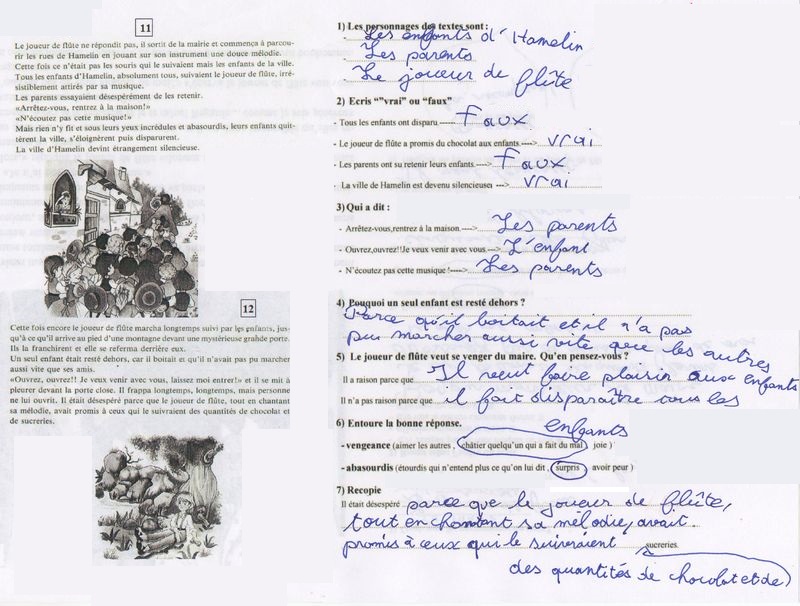 11
Le joueur de flûte ne répondit pas, il sortit de la mairie et commença à parcou-
rir les rues de Hamelin en jouant sur son instrument une douce mélodie.
Cette fois ce n'était pas les souris qui le suivaient mais les enfants de la ville.
Tous les enfants d'Hamelin, absolument tous, suivaient le joueur de flûte, irré-
sistiblement attirés par sa musique.
Les parents essayaient désespérément de les retenir.
«Arrêtez-vous, rentrez à la maison!»
«N'écoutez pas cette musique!»
Mais rien n'y fit et sous leurs yeux incrédules et abasourdis, leurs enfants quit-
tèrent la ville, s'éloignèrent puis disparurent.
La ville d'Hamelin devint étrangement silencieuse.
12
Cette fois encore le joueur de flûte marcha longtemps suivi par les enfants, jus-
qu'à ce qu'il arrive au pied d'une montagne devant une mystérieuse grande porte.
Ils la franchirent et elle se referma derrière eux.
Un seul enfant était resté dehors, car il boitait et qu'il n'avait pas pu marcher
aussi vite que ses amis.
«Ouvrez, ouvrez!! Je veux venir avec vous, laissez moi entrer!» et il se mit à
pleurer devant la porte close. Il frappa longtemps, longtemps, mais personne
ne lui ouvrit. Il était désespéré parce que le joueur de flûte, tout en chantant
sa mélodie, avait promis à ceux qui le suivraient des quantités de chocolat et
de sucreries.
1) Les personnages des textes sont :
- Les enfants d'Hamelin
- Les parents
- Le joueur de flûte
2) Ecris ""vrai" ou "faux"
- Tous les enfants ont disparu faux
- Le joueur de flûte a promis du chocolat aux enfants----> vrai
- Les parents ont su retenir leurs enfants----> faux
- La ville de Hamelin est devenu silencieuse --> vrai
3) Qui a dit :
- Arrêtez-vous,rentrez à la maison----> Les parents
- Ouvrez,ouvrez!!Je veux venir avec vous----> L'enfant
- N'écoutez pas cette musique !----> Les parents
4) Pouquoi un seul enfant est resté dehors ?
Parce qu'il boitait et il n'a pas
pu marcher aussi vite que les autres
5) Le joueur de flûte veut se venger du maire. Qu'en pensez-vous ?
Il a raison parce que Il veut faire plaisir aux enfants
Il n'a pas raison parce que il fait disparaître tous les
enfants
6) Entoure la bonne réponse.
- vengeance (aimer les autres , châtier quelqu'un qui a fait du mal, joie )
- abasourdis (étourdis qui n'entend plus ce qu'on lui dit , surpris , avoir peur )
7) Recopie
Il était désespéré parce que le joueur de flûte,
tout en chantant sa mélodie, avait
promis à ceux qui le suiveraient sucreries.
des quantités de chocolat et de